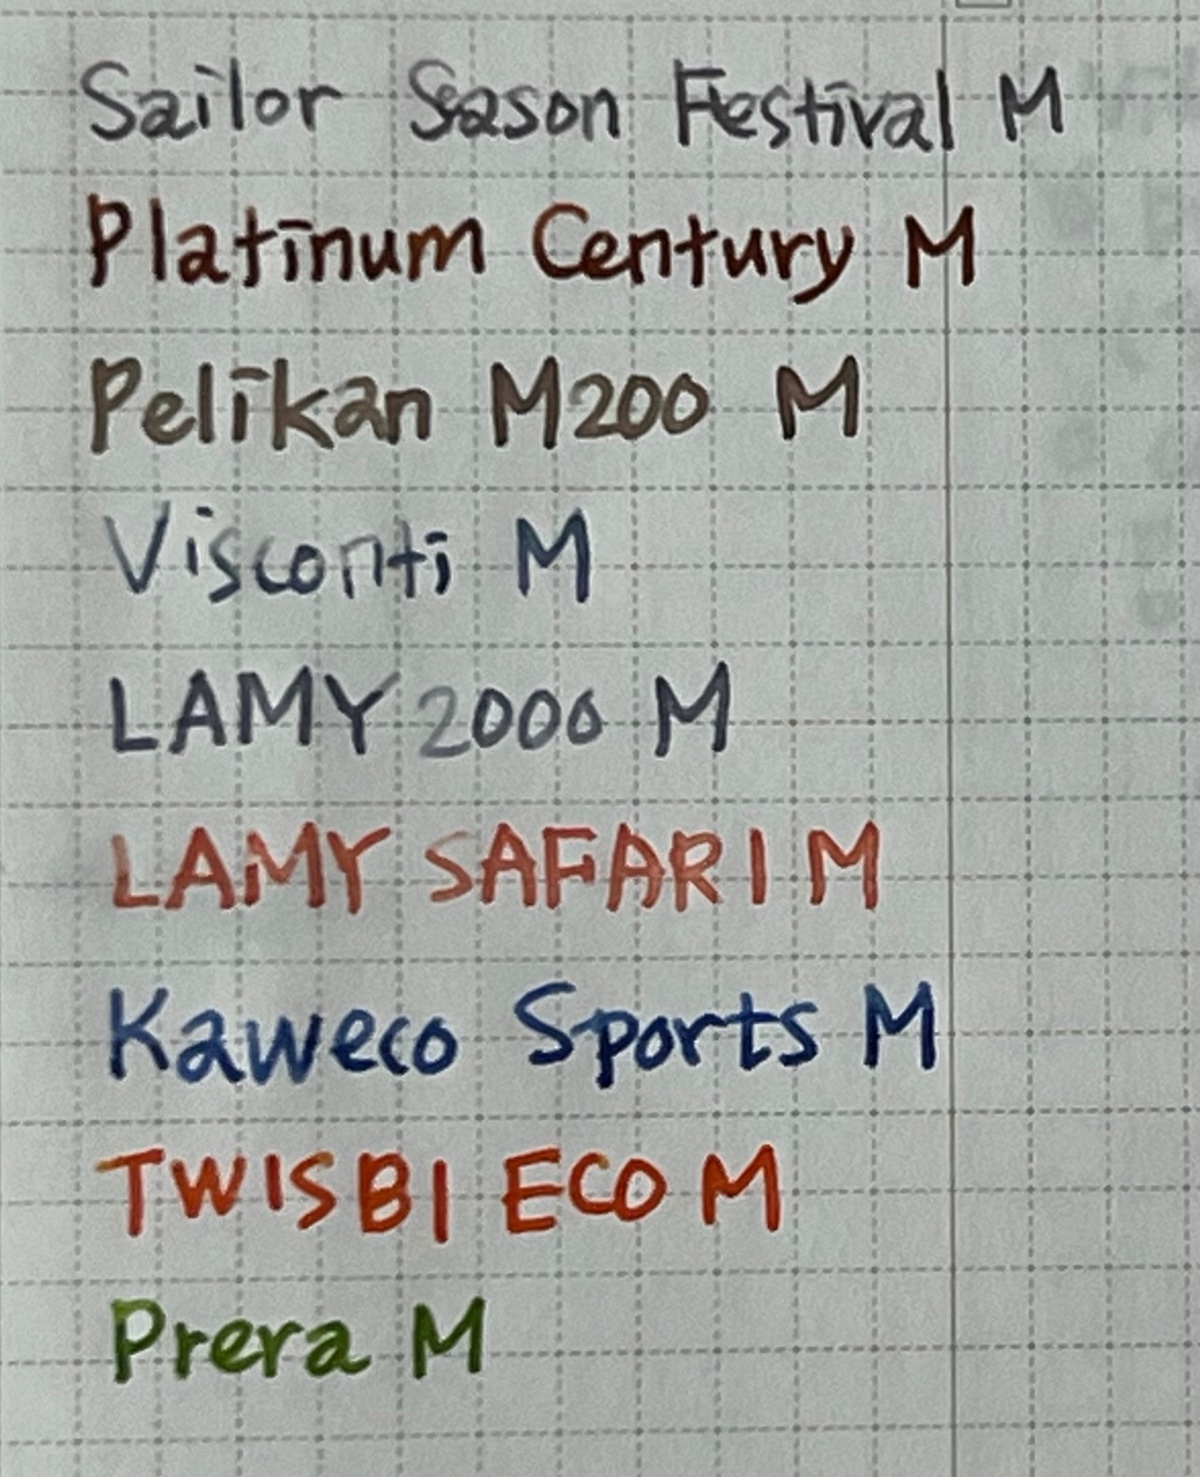 Sailor Season Festival M
Platinum Century M
Pelikan M200 M
Visconti M
LAMY 2000 M
LAMY SAFARI M
Kaweco Sports M
TWISBI ECO M
Prera M